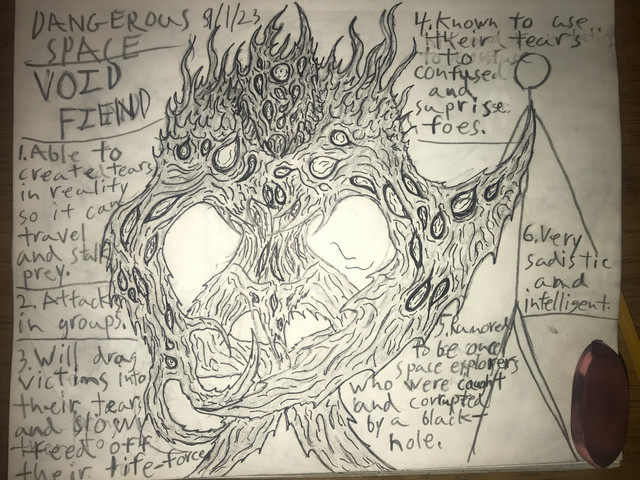 DANGEROUS 8/1/23
SPACE
VOID
FIEND
1. Able to
create tears
in reality
so it can
travel
and stalk
prey.
2. Attack
in groups.
3. Will drag
victims into
their tears
and slowly
feed off
their life-force
4. Known to use
their tears
to
confused
and
suprise
foes.
5. Rumored
to be once
space explorers
who were caught
and corrupted
by a black-
hole.
6. Very
sadistic
and
intelligent.